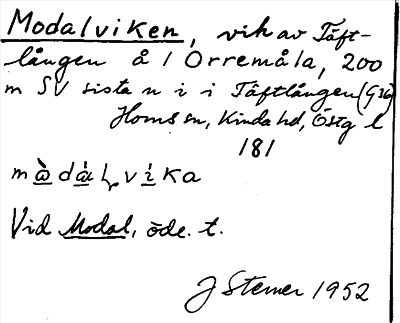 Modalviken, vik av Täft-
lången å 1 Orremåla, 200
m SV sista n i i Täftlången (G36)
Horns sn, Kinda hd, Östg l
181
Vid Modal, öde. t.
J Sterner 1952